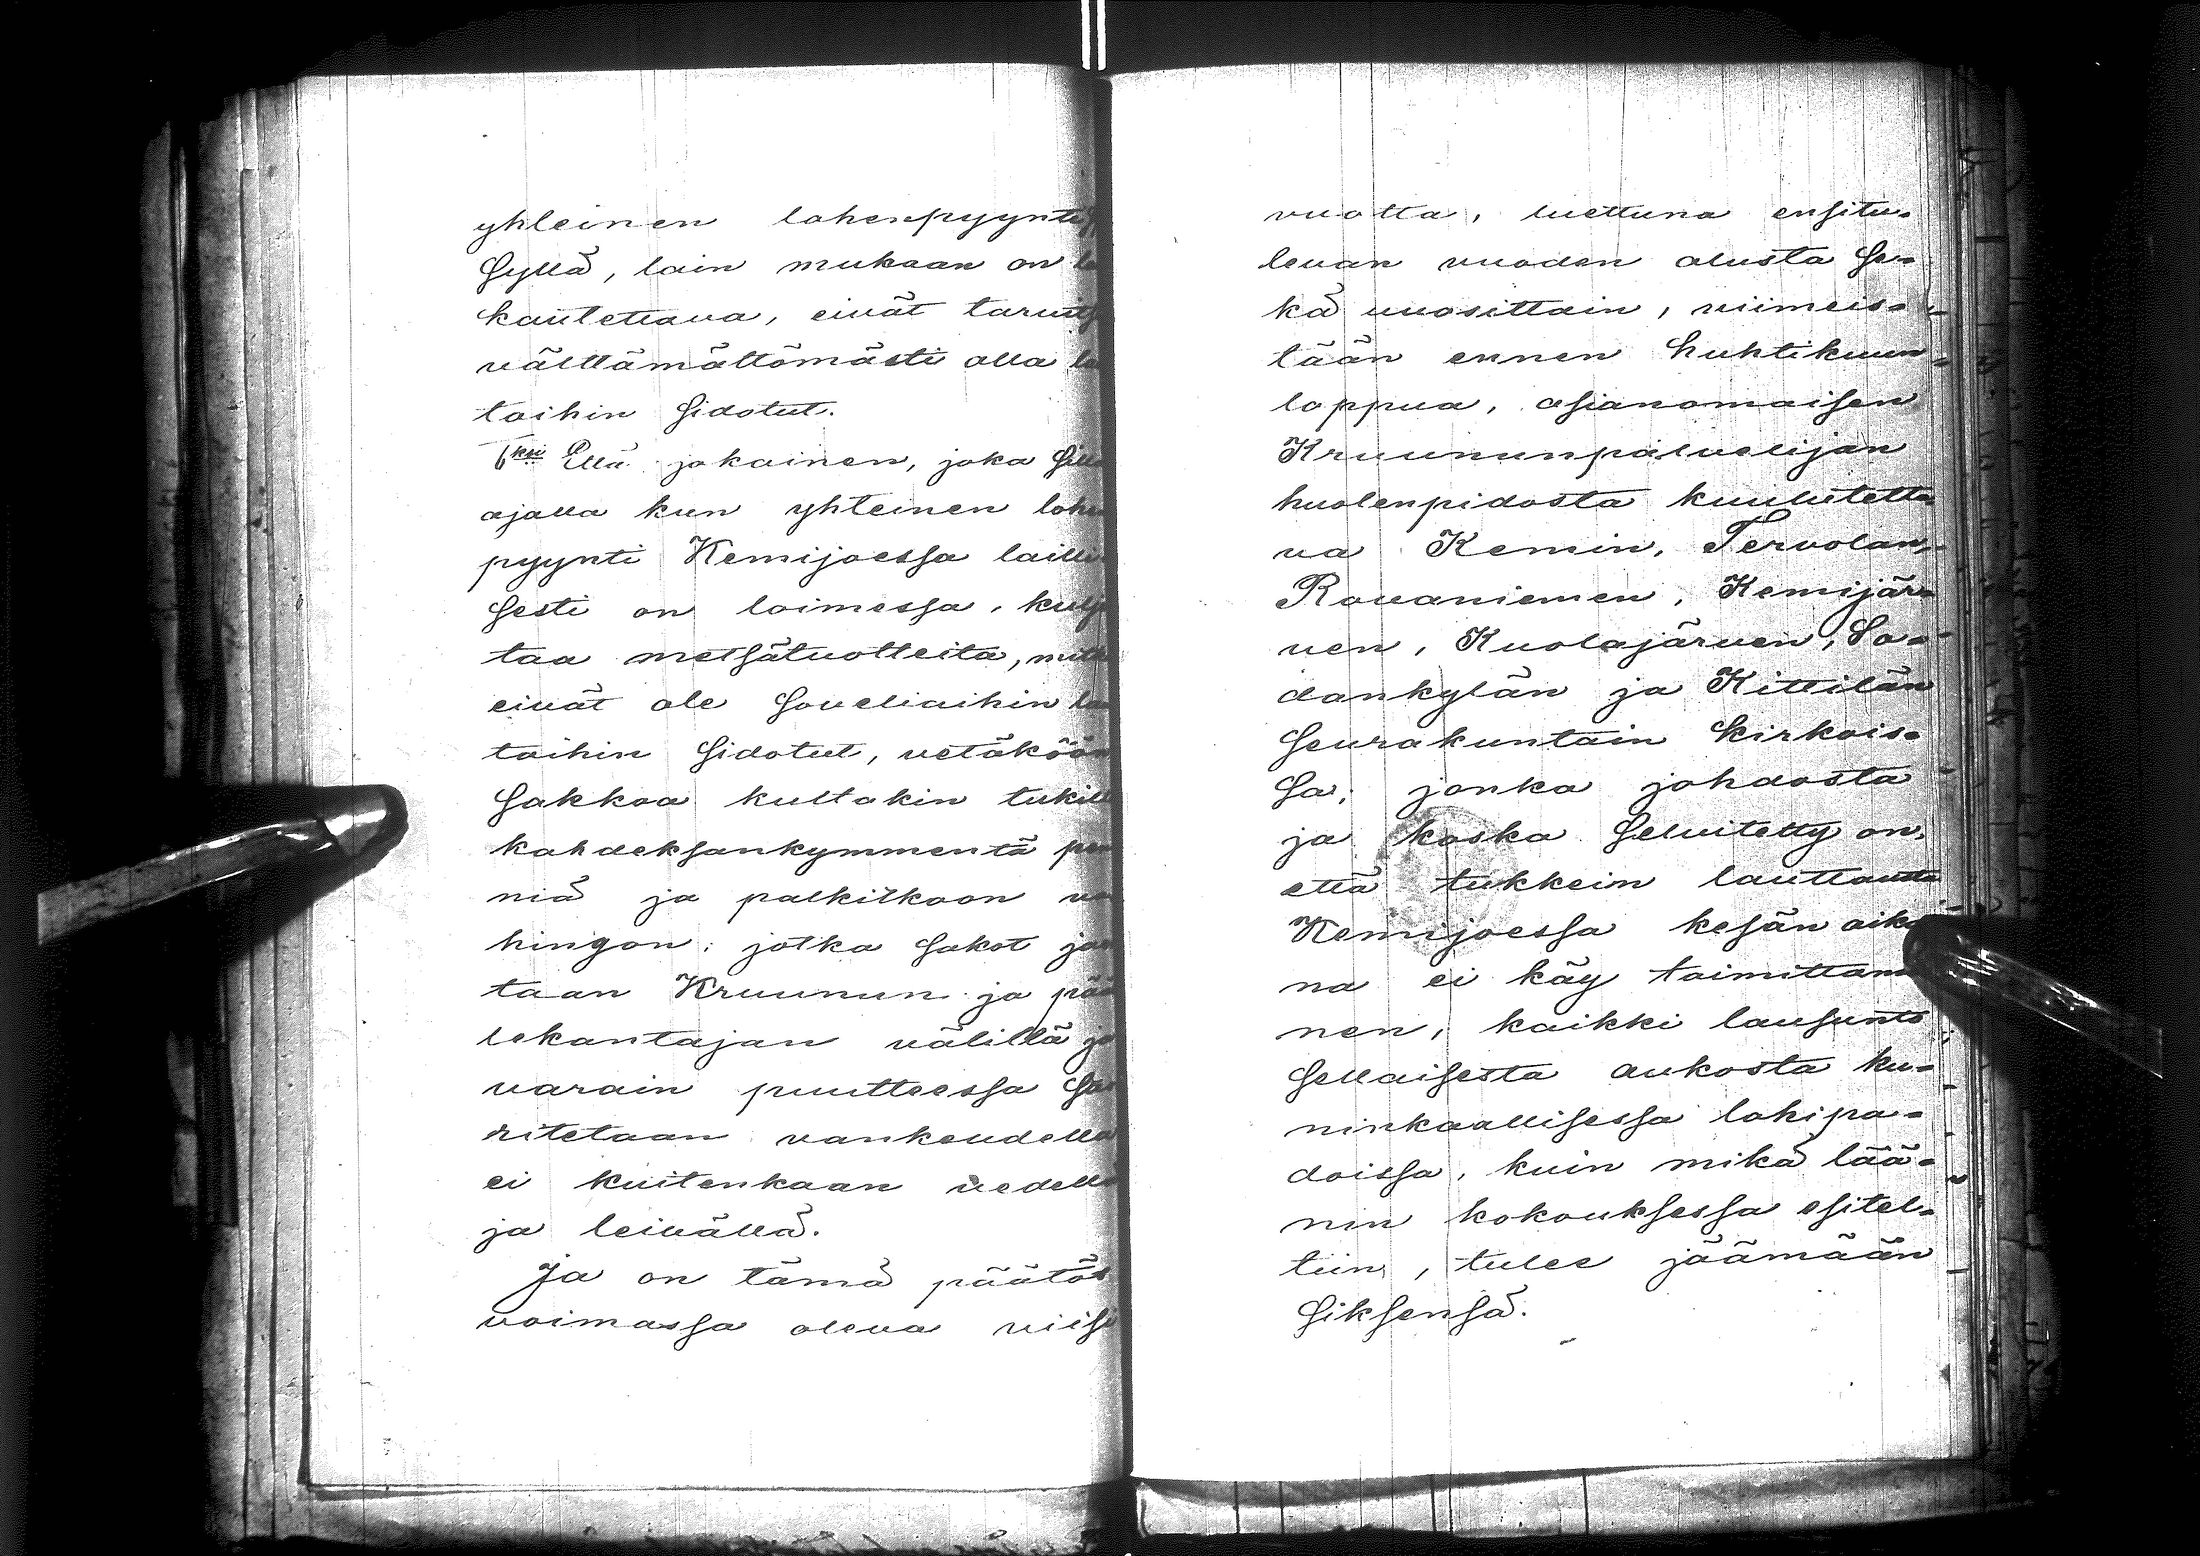 yhteinen lohenpyynti
syllä, lain mukaan on
lautettava, eivät tarvitse
välttämättömästi olla
toihin sidotut.
6ksi Että jokainen, joka sillä
ajalla kun yhteinen lohen
pyynti Kemijoessa lailli
sesti on toimessa, kulje
taa metsätuotteita, mitkä
eivät ole soveliaihin
toihin sidotut, vetäköön
sakkoa kultakin tukilta
kahdeksankymmentä pen
niä ja palkitkoon va
hingon; jotka sakot jae
taan Kruunun ja pää
lekantajan välillä ja
varain puutteessa so
ritetaan vankeudella
ei kuitenkaan vedellä
ja leivällä.
Ja on tämä päätös
voimassa oleva viisi
vuotta, luettuna ensitu-
levan vuoden alusta se-
kä vuosittain, viimeis-
tään ennen huhtikuun
loppua, asianomaisen
Kruununpalvelijan
huolenpidosta kuulutetta
va Kemin, Tervolan,
Rovaniemen, Kemijär-
ven, Kuolajärven, So-
dankylän ja Kittilän
seurakuntain kirkois-
sa; jonka johdosta
ja koska selvitetty on,
että tukkein lauttausta
Kemijoessa kesän aika
na ei käy toimittami
nen, kaikki lausunto
sellaisesta aukosta ku-
ninkaallisessa lohipa-
doissa, kuin mikä lää-
nin kokouksessa esitel-
tiin, tulee jäämään
siksensä.